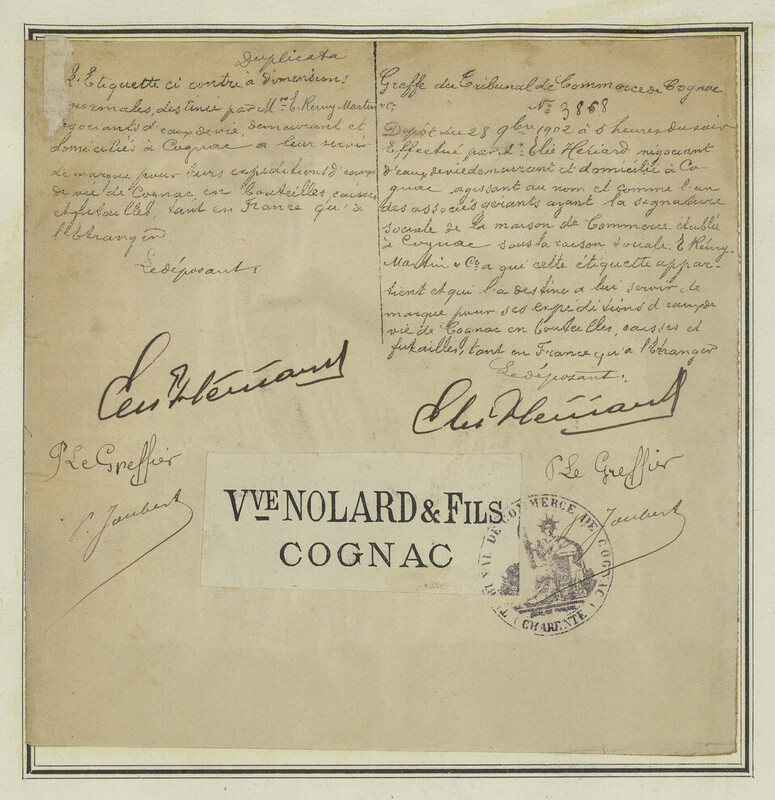 Duplicata
L'Etiquette ci contre à dimensions
normales, destinée par Mrs E. Remy Martin & Co
négociants d'eaux de vie, demeurant et
domiciliés à Cognac a leur servir
de marque pour leurs expéditions d'eaux
de vie de Cognac en bouteilles, caisses
et futailles, tant en France qu'à
l'Etranger
Le déposant,
P Le Greffier
P. Joubert
Greffe du Tribunal de Commerce de Cognac
No 3868
Dépôt du 28 9bre 1902 à 5 heures du soir
Effectué par Mr Elie Hériard négociant
d'eaux de vie demeurant et domicilié à Co-
gnac, agissant au nom et comme l'un
des associés gérants ayant la signature
sociale de la maison de Commerce établie
à Cognac sous la raison sociale E Rémy
Martin & Co a qui cette étiquette appar-
tient et qui l'a destinée a lui servir de
marque pour ses expéditions d'eaux de
vie de Cognac en bouteilles, caisses et
futailles, tant en France qu'a l'Etranger
Le déposant.
P Le Greffier
P. Joubert
VVE NOLARD & FILS
COGNAC
TRIBUNAL DE COMMERCE DE COGNAC
(CHARENTE)